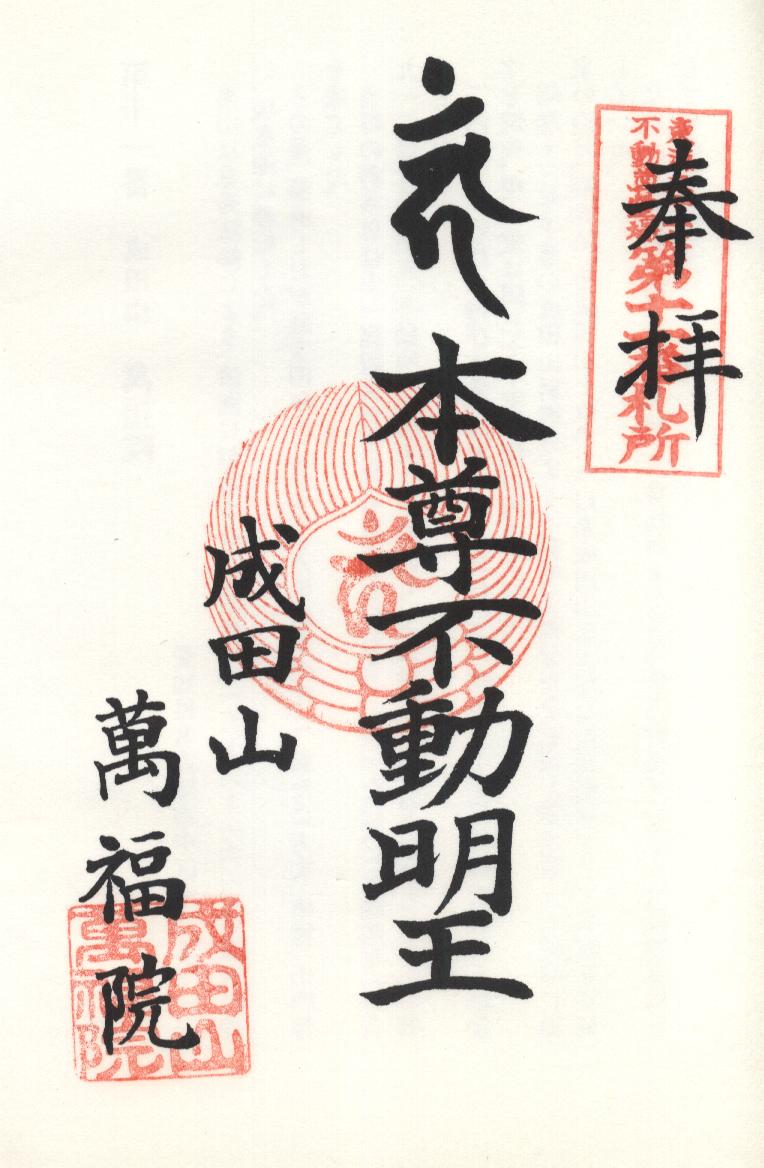 奉拝
不動尊霊場
第十 札所
本尊不動明王
成田山
萬福院
成田山
萬福院